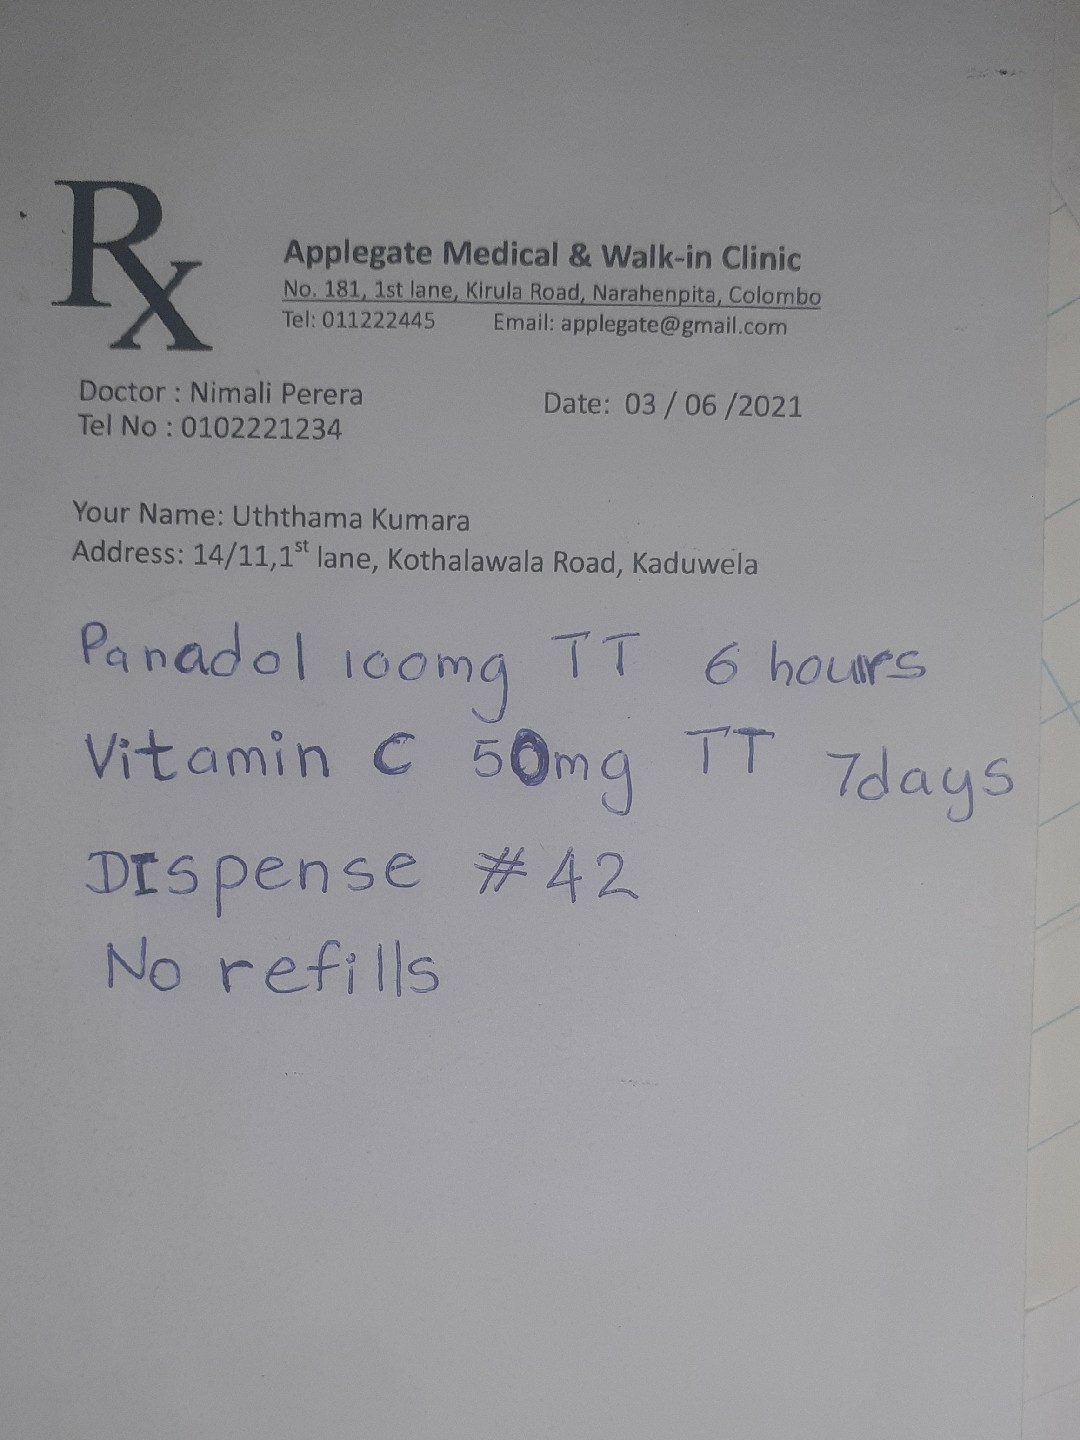 Rx
Applegate Medical & Walk-in Clinic
No. 181, 1st lane, Kirula Road, Narahenpita, Colombo
Tel: 011222445 Email: applegate@gmail.com
Doctor : Nimali Perera Date: 03 / 06 /2021
Tel No : 0102221234
Your Name: Uththama Kumara
Address: 14/11,1st lane, Kothalawala Road, Kaduwela
Panadol 100mg TT 6 hours
Vitamin C 50mg TT 7days
DIspense #42
No refills